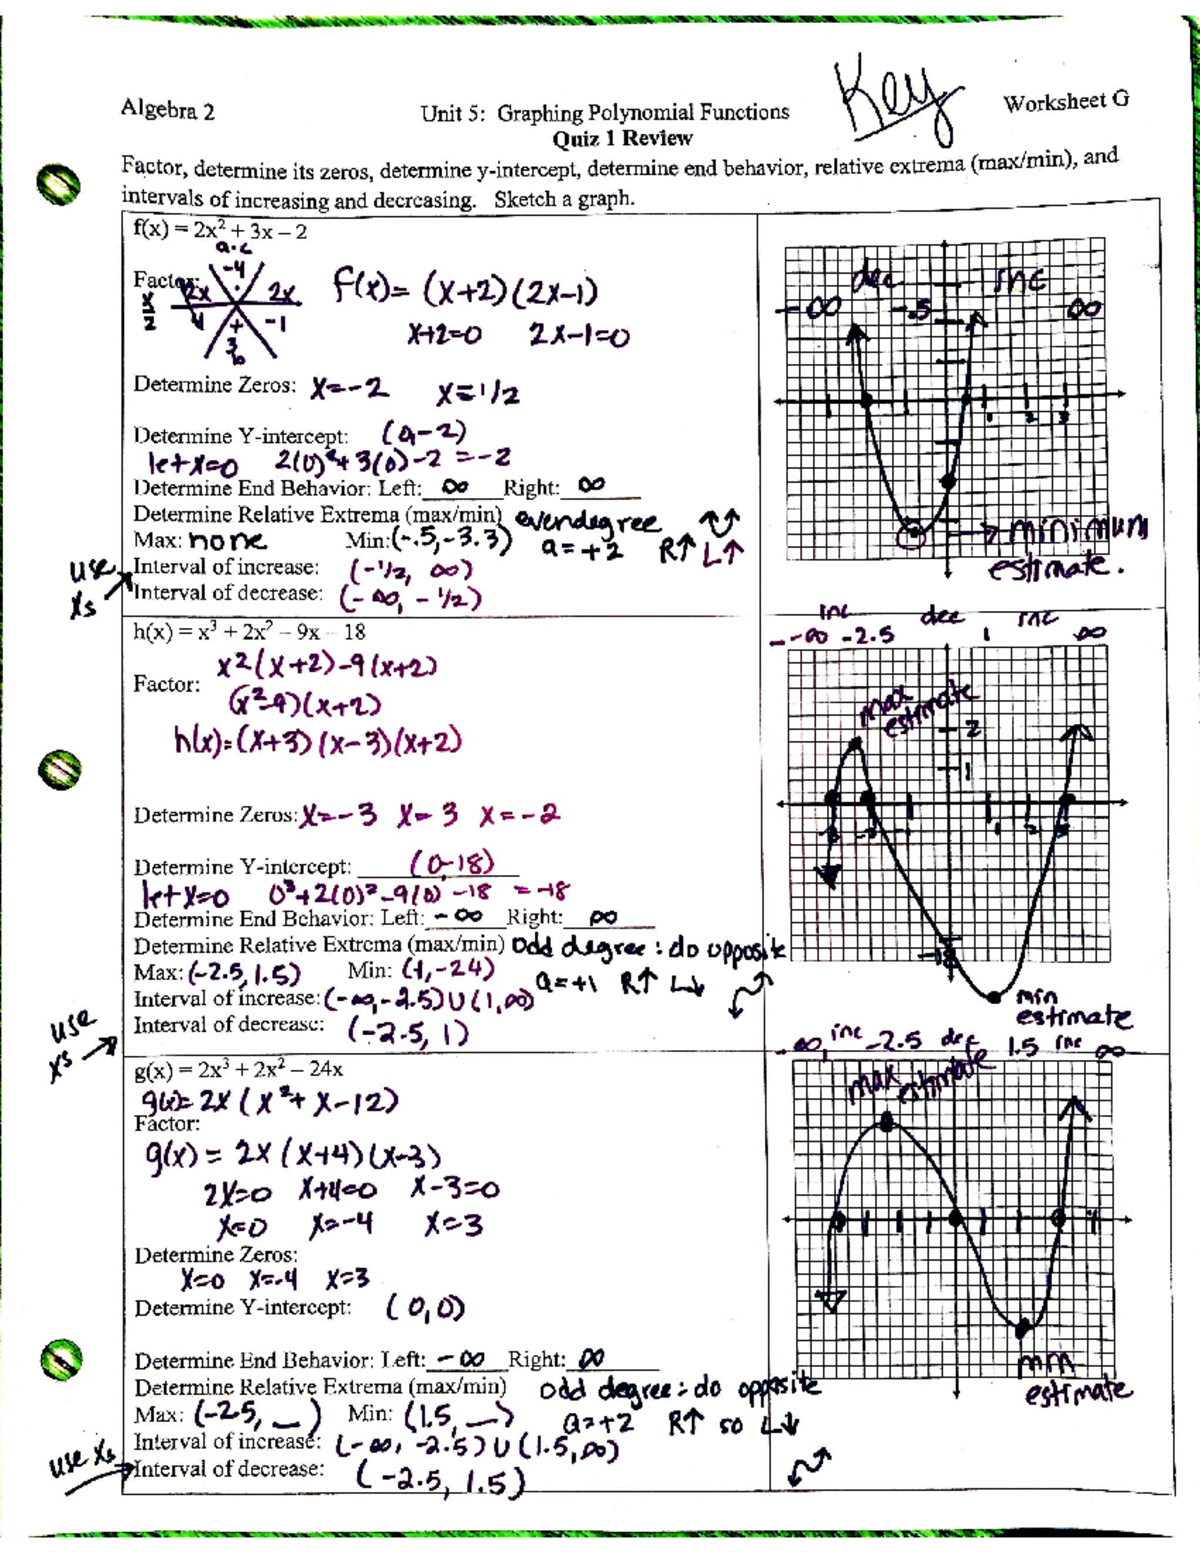 Key
Algebra 2 Unit 5: Graphing Polynomial Functions Worksheet G
Quiz 1 Review
Factor, determine its zeros, determine y-intercept, determine end behavior, relative extrema (max/min), and
intervals of increasing and decreasing. Sketch a graph.
f(x) = 2x² + 3x – 2
a·c
-4
Factor: 2x 2x f(x)= (x+2)(2x-1)
4 -1
+
3
x+2=0 2x-1=0
Determine Zeros: x=-2 x=1/2
Determine Y-intercept: (0,-2)
let x=0 2(0)²+3(0)-2 =-2
Determine End Behavior: Left: ∞ Right: ∞
Determine Relative Extrema (max/min) even degree
Max: none Min: (-.5,-3.3) a=+2 R↑ L↑
use xs
Interval of increase: (-1/2, ∞)
Interval of decrease: (-∞, -1/2)
dec inc
-∞ -.5 ∞
1 2 3
minimum
estimate.
h(x) = x³ + 2x² – 9x – 18
x2(x+2)-9(x+2)
Factor: (x²-9)(x+2)
h(x)=(x+3)(x-3)(x+2)
Determine Zeros: x=-3 x=3 x=-2
Determine Y-intercept: (0-18)
let x=0 0³+2(0)²-9(0)-18 =-18
Determine End Behavior: Left: -∞ Right: ∞
Determine Relative Extrema (max/min) odd degree: do opposite
Max: (-2.5,1.5) Min: (1,-24) a=+1 R↑ L↓
Interval of increase: (-∞,-2.5)∪(1,∞)
use xs
Interval of decrease: (-2.5, 1)
inc dec inc
-∞ -2.5 1 ∞
max
estimate
2
1
1 2 3
-18
min
estimate
g(x) = 2x³ + 2x² – 24x
g(x)= 2x(x²+x-12)
Factor:
g(x) = 2x(x+4)(x-3)
2x=0 x+4=0 x-3=0
x=0 x=-4 x=3
Determine Zeros:
x=0 x=-4 x=3
Determine Y-intercept: (0,0)
Determine End Behavior: Left: -∞ Right: ∞
Determine Relative Extrema (max/min) odd degree: do opposite
Max: (-2.5, _) Min: (1.5, _) a=+2 R↑ so L↓
Interval of increase: (-∞, -2.5)∪(1.5,∞)
use xs
Interval of decrease: (-2.5, 1.5)
∞, inc -2.5 dec 1.5 inc ∞
max estimate
min
estimate